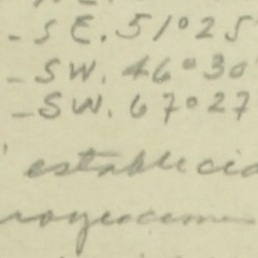 - SE. 51°25
- SW. 46°30
- SW. 67°27
establecid